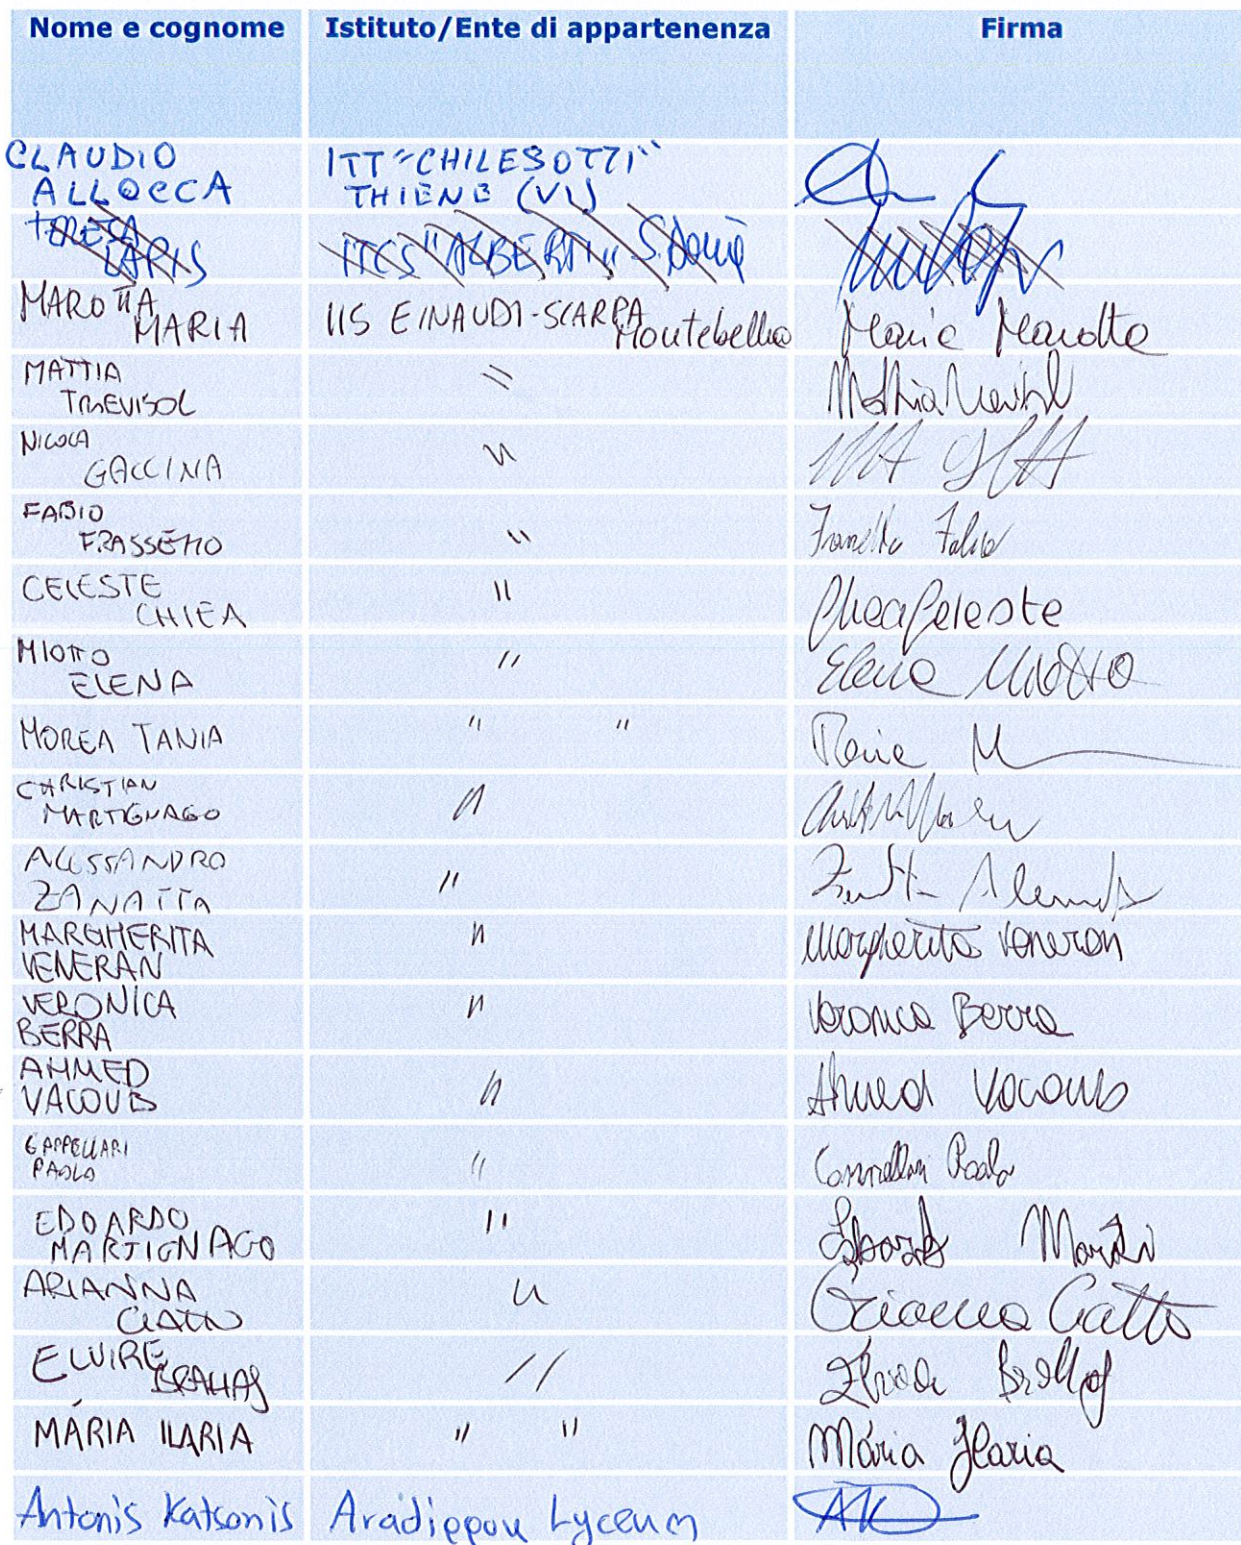 Nome e cognome Istituto/Ente di appartenenza Firma
CLAUDIO ITT "CHILESOTTI"
ALLOCCA THIENE (VI)
TERESA
LAPIS ITCS "ALBERTI" S. Donà
MAROTTA
MARIA IIS EINAUDI-SCARPA Montebelluna Maria Marotta
MATTIA "
TREVISOL Mattia Trevisol
NICOLA "
GALLINA
FABIO "
FRASSETTO Frassetto Fabio
CELESTE "
CHIEA Chiea Celeste
MIOTTO "
ELENA Elena Miotto
MOREA TANIA " " Tania M
CHRISTIAN "
MARTIGNAGO
ALESSANDRO "
ZANATTA Zanatta Alessandro
MARGHERITA " Margherita Veneran
VENERAN
VERONICA " Veronica Berra
BERRA
AHMED "
YACOUB Ahmed Yacoub
CAPPELLARI
PAOLO " Cappellari Paolo
EDOARDO "
MARTIGNAGO Edoardo
ARIANNA "
GATTO Arianna Gatto
ELVIRE "
BRAHAJ
MÁRIA ILARIA " " Mária Ilaria
Antonis Katsonis Aradippou Lyceum AK